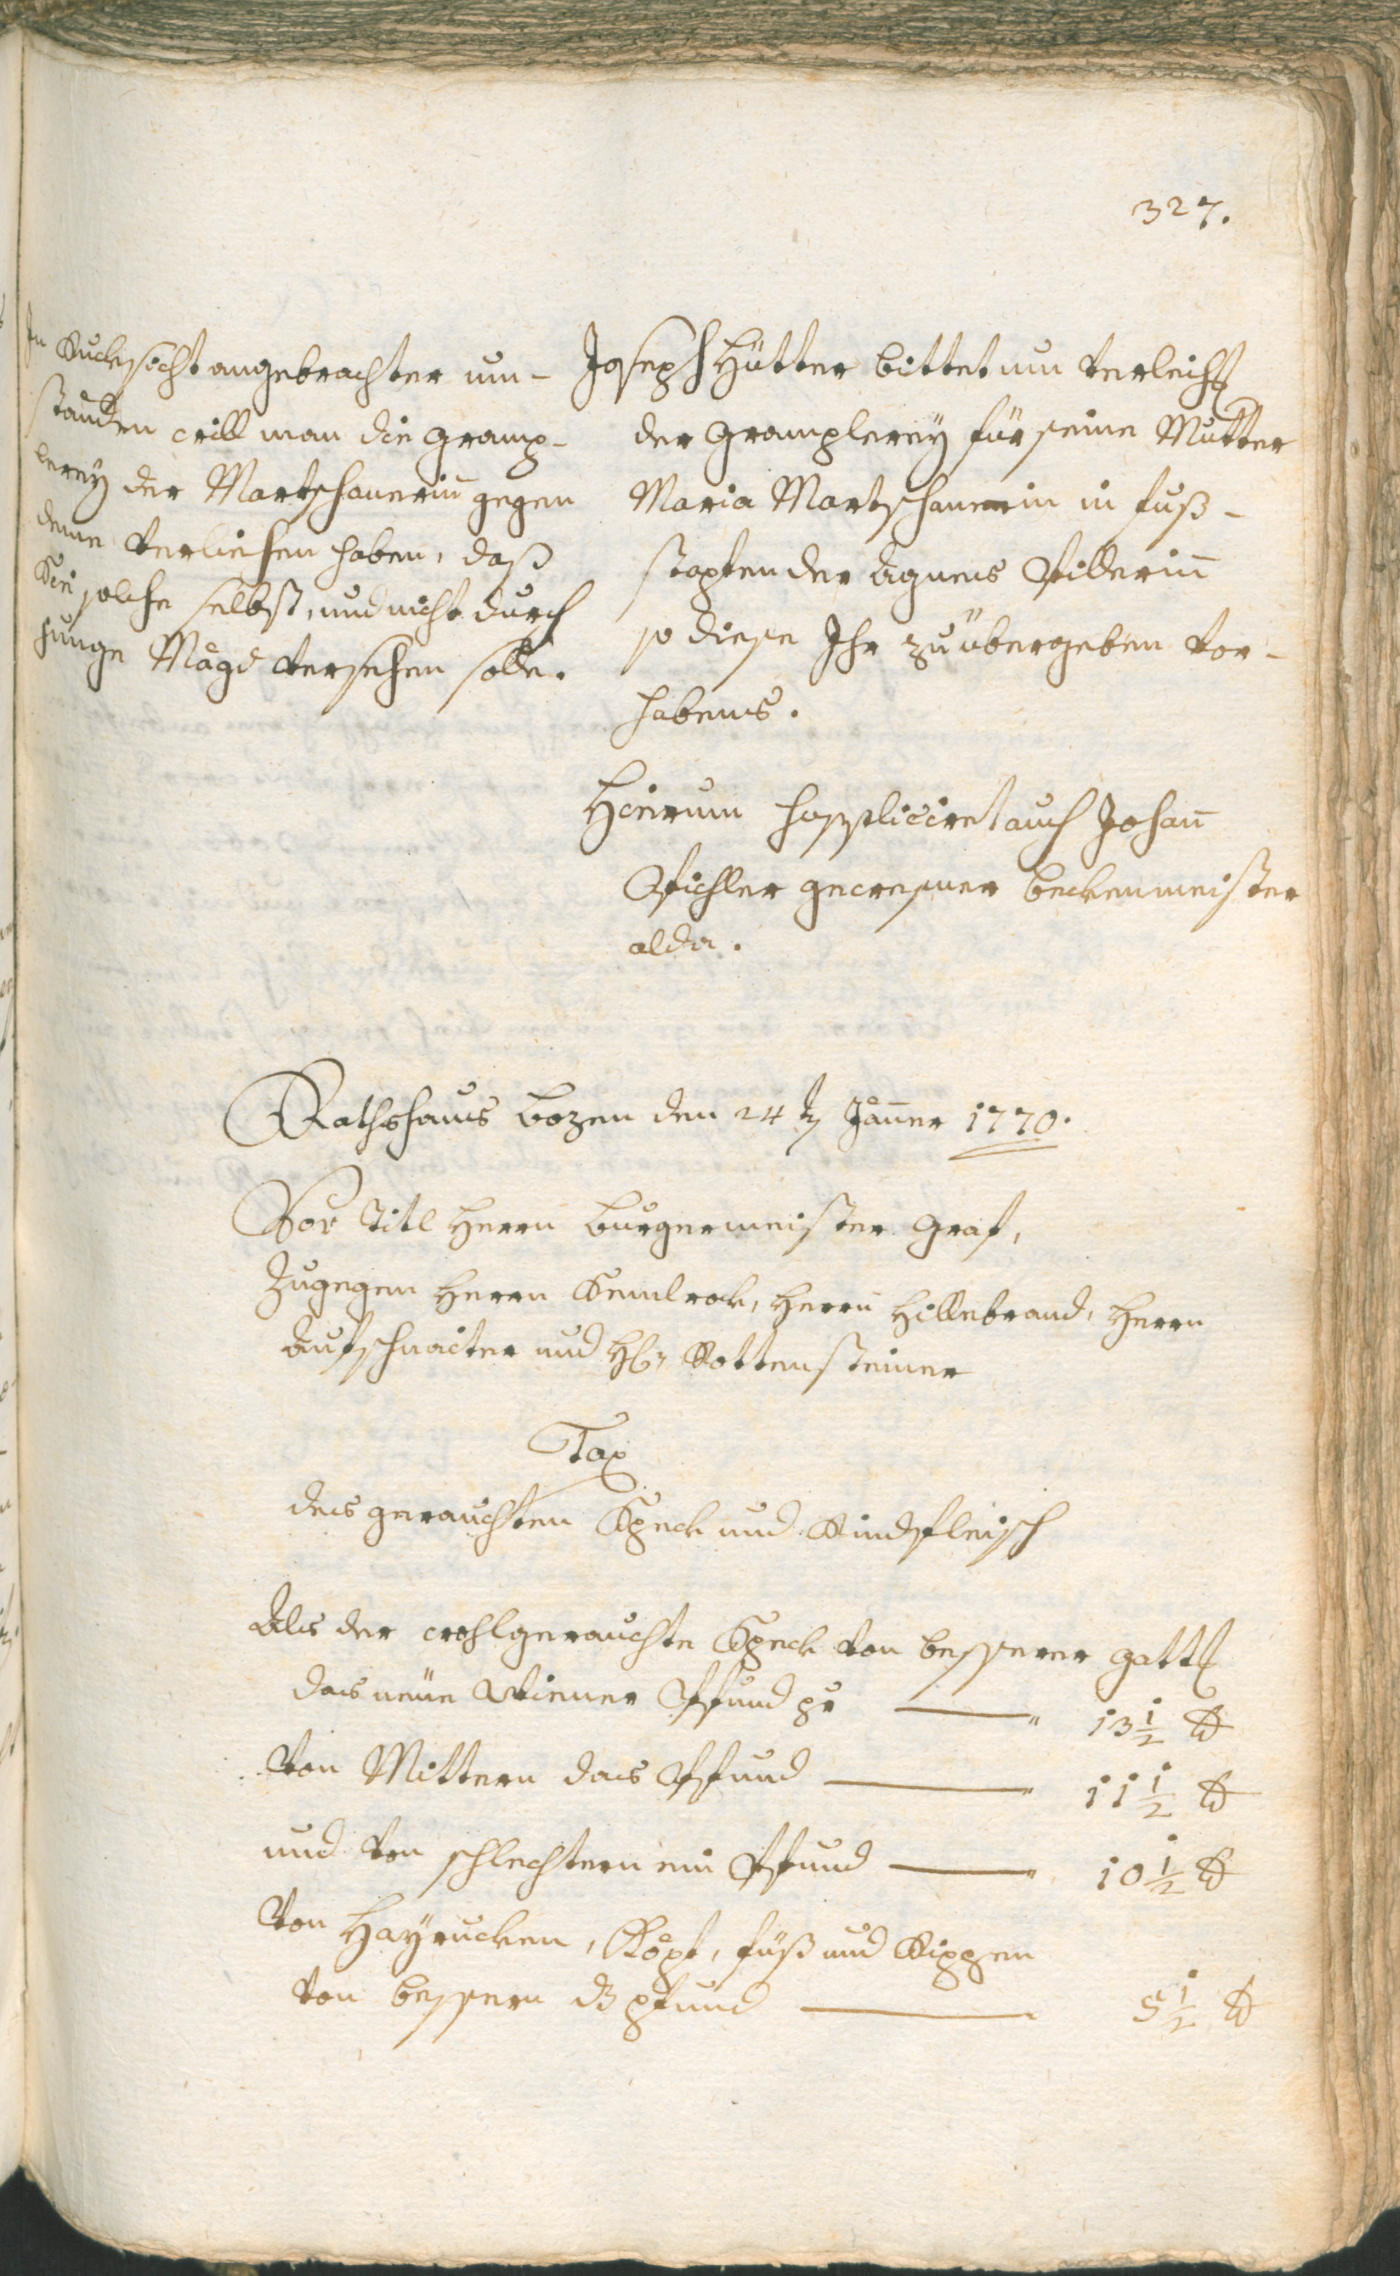 327.
In Rucksicht angebrachter um-
standen will man die Gramp-
lerey der Martschanerin gegen
deme verliehen haben, daß
Sie solche selbst, und nicht durch
junge Mägd versehen solle.
Joseph Hütter bittet um Verleich
der Gramplerey für seine Mutter
Maria Martschanerin in fuß-
stapfen der Agnes Pillerin
so diese Ihr zu übergeben vor-
habens.
Hierum supplicirt auch Johann
Pichler gewesner Beckenmeister
alda.
Rathshaus Bozen den 24 Jänner 1770.
Vor Titl Herrn Burgermeister Graf,
Zugegen Herrn Kemlrok, Herrn Hillebrand, Herrn
Aufschnaiter und H: Rottensteiner
Tax
des gerauchten Speck und Rindfleisch
Als der wohlgerauchte Speck von besserer Gatt
das neue Wiener Pfund pr — 13 1/2 x
Von Mittern das Pfund — 11 1/2 x
und von schlechtern ein Pfund — 10 1/2 x
Von Hayrucken, Köpf, füß und Rippen
von bessern d pfund — 5 1/2 x